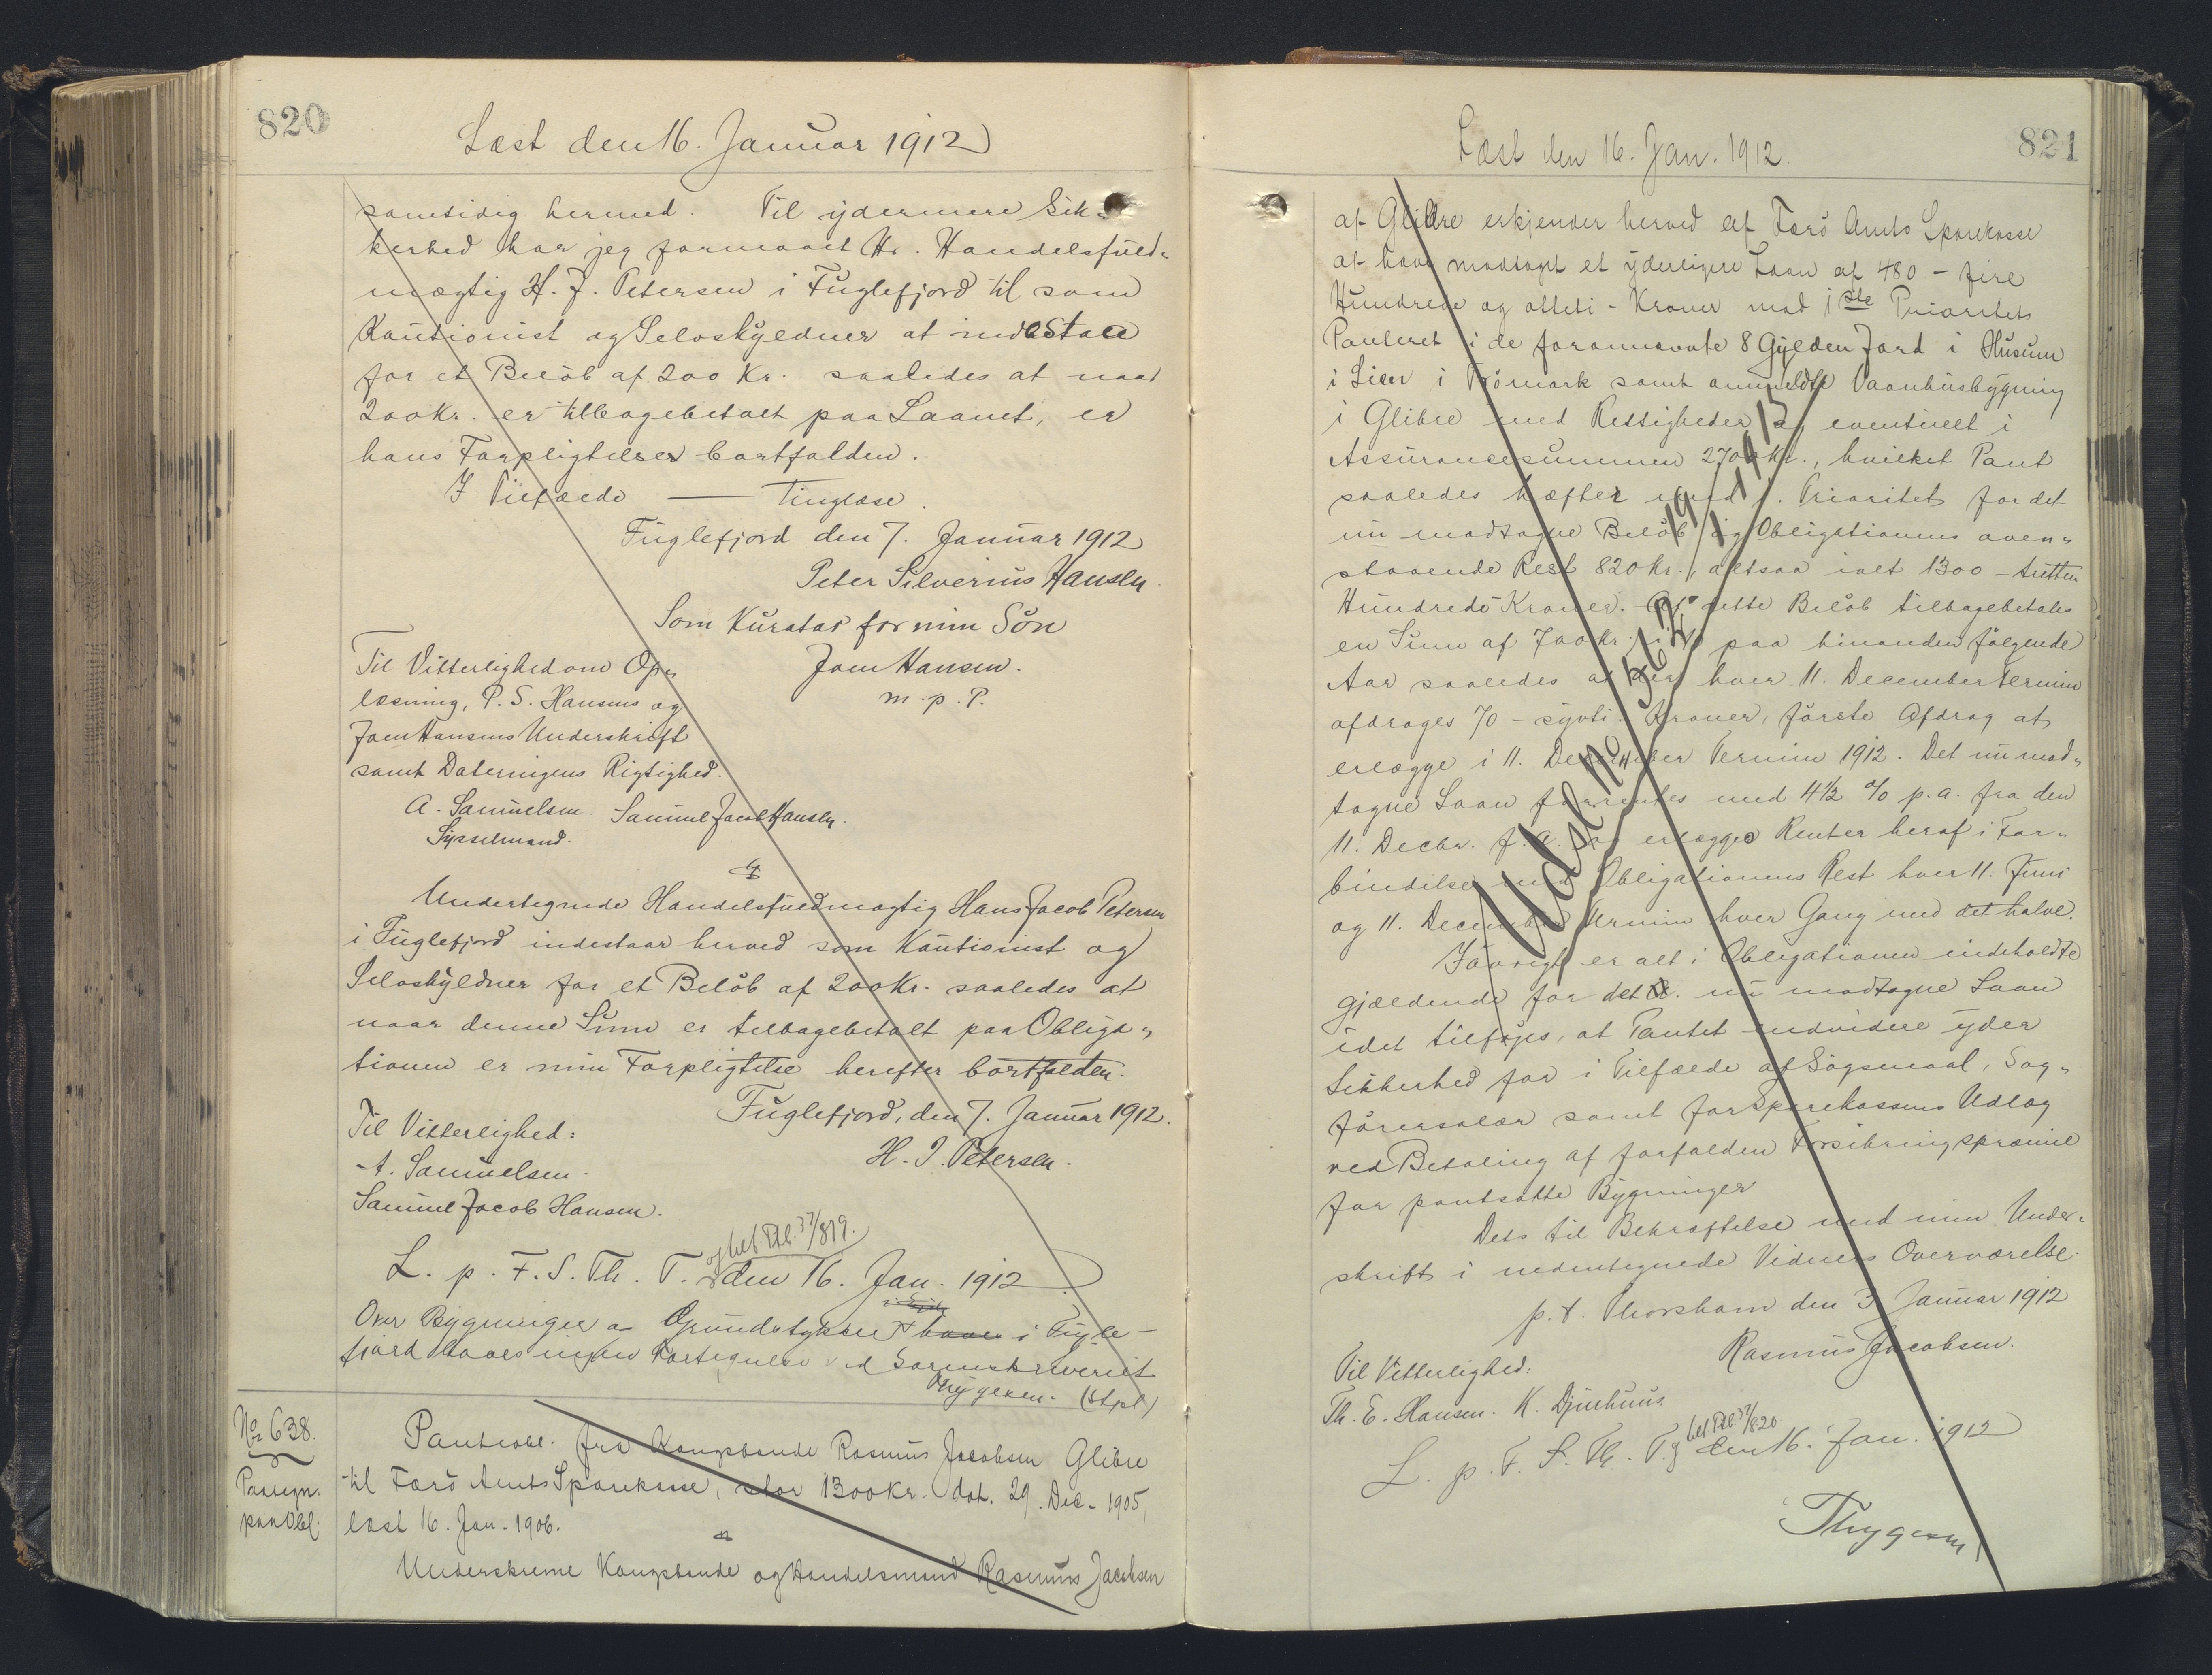 820
Læst den 16. Januar 1912
samtidig hermed. Til ydermere Sik-
kerhed har jeg formaaet Hr. Handelsfuld-
mægtig H. J. Petersen i Fuglefjord til som
Kautionist og Selvskyldner at indestaa
for et Beløb af 200 Kr. saaledes at naar
200 Kr. er tilbagebetalt paa Laanet, er
hans Forpligtelser bortfalden.
I Tilfælde — Tinglæse.
Fuglefjord den 7. Januar 1912
Peter Silverius Hansen.
Som Kurator for min Søn
Til Vitterlighed om Op-
Joen Hansen.
læsning, P. S. Hansens og
m. p. P.
Joen Hansens Underskrift
samt Dateringens Rigtighed.
A. Samuelsen. Samuel Jacob Hansen.
Sysselmand.
Undertegnede Handelsfuldmægtig Hans Jacob Petersen
i Fuglefjord indestaar herved som Kautionist og
Selvskyldner for et Beløb af 200 Kr. saaledes at
naar denne Sum er tilbagebetalt paa Obliga-
tionen er min Forpligtelse herefter bortfalden.
Fuglefjord, den 7. Januar 1912.
Til Vitterlighed:
H. J. Petersen.
A. Samuelsen.
Samuel Jacob Hansen.
og bet. Ptb. 37/819.
L. p. F. S. Th. T. den 16. Jan. 1912
Over Bygninger og Grundstykker i Fugle-
fjord haves ingen Fortegnelse ved Sorenskriveriet
Thygesen. (Stpl)
No 638.
Paategn.
paa Obl.
Panteobl. fra Kongsbonde Rasmus Jacobsen Glibre
til Færø Amts Sparekasse, stor 1300 Kr. dat. 29. Dec. 1905,
læst 16. Jan. 1906.
Underskrevne Kongsbonde og Handelsmand Rasmus Jacobsen
821
Læst den 16. Jan. 1912
af Glibre erkjender herved af Færø Amts Sparekasse
at have modtaget et yderligere Laan af 480 – fire
Hundrede og otteti – Kroner mod 1ste Prioritets
Panteret i de forannævnte 8 Gylden Jord i Husum
i Leen i Trømark samt anmeldte Vaanhusbygning
i Glibre med Rettigheder og eventuelt i
Assurancesummen 2700 Kr., hvilket Pant
saaledes hæfter med 1. Prioritet for det
nu modtagne Beløb og Obligationens oven-
staaende Rest 820 Kr., altsaa ialt 1300 – tretten
Hundrede Kroner. – Af dette Beløb tilbagebetales
en Sum af 700 Kr. i 10 paa hinanden følgende
Aar saaledes at der hver 11. December Termin
afdrages 70 – syvti – Kroner, første Afdrag at
erlægge i 11. December Termin 1912. Det nu mod-
tagne Laan forrentes med 4½ % p. a. fra den
11. Decbr. f. A. og erlægges Renter heraf i For-
bindelse med Obligationens Rest hver 11. Juni
og 11. December Termin hver Gang med det halve.
Iøvrigt er alt i Obligationen indeholdte
gjældende for det nu modtagne Laan
idet tilføjes, at Pantet endvidere yder
Sikkerhed for i Tilfælde af Søgsmaal, Sag-
førersalær samt for Sparekassens Udlæg
ved Betaling af forfalden Forsikringspræmie
for pantsatte Bygninger
Dets til Bekræftelse med min Under-
skrift i nedentegnede Vidners Overværelse.
p. t. Thorshavn den 3. Januar 1912
Rasmus Jacobsen.
Til Vitterlighed:
Th. E. Hansen. K. Djurhuus
bet Ptb 37/820
L. p. F. S. Th. T. og den 16. Jan. 1912
Thygesen